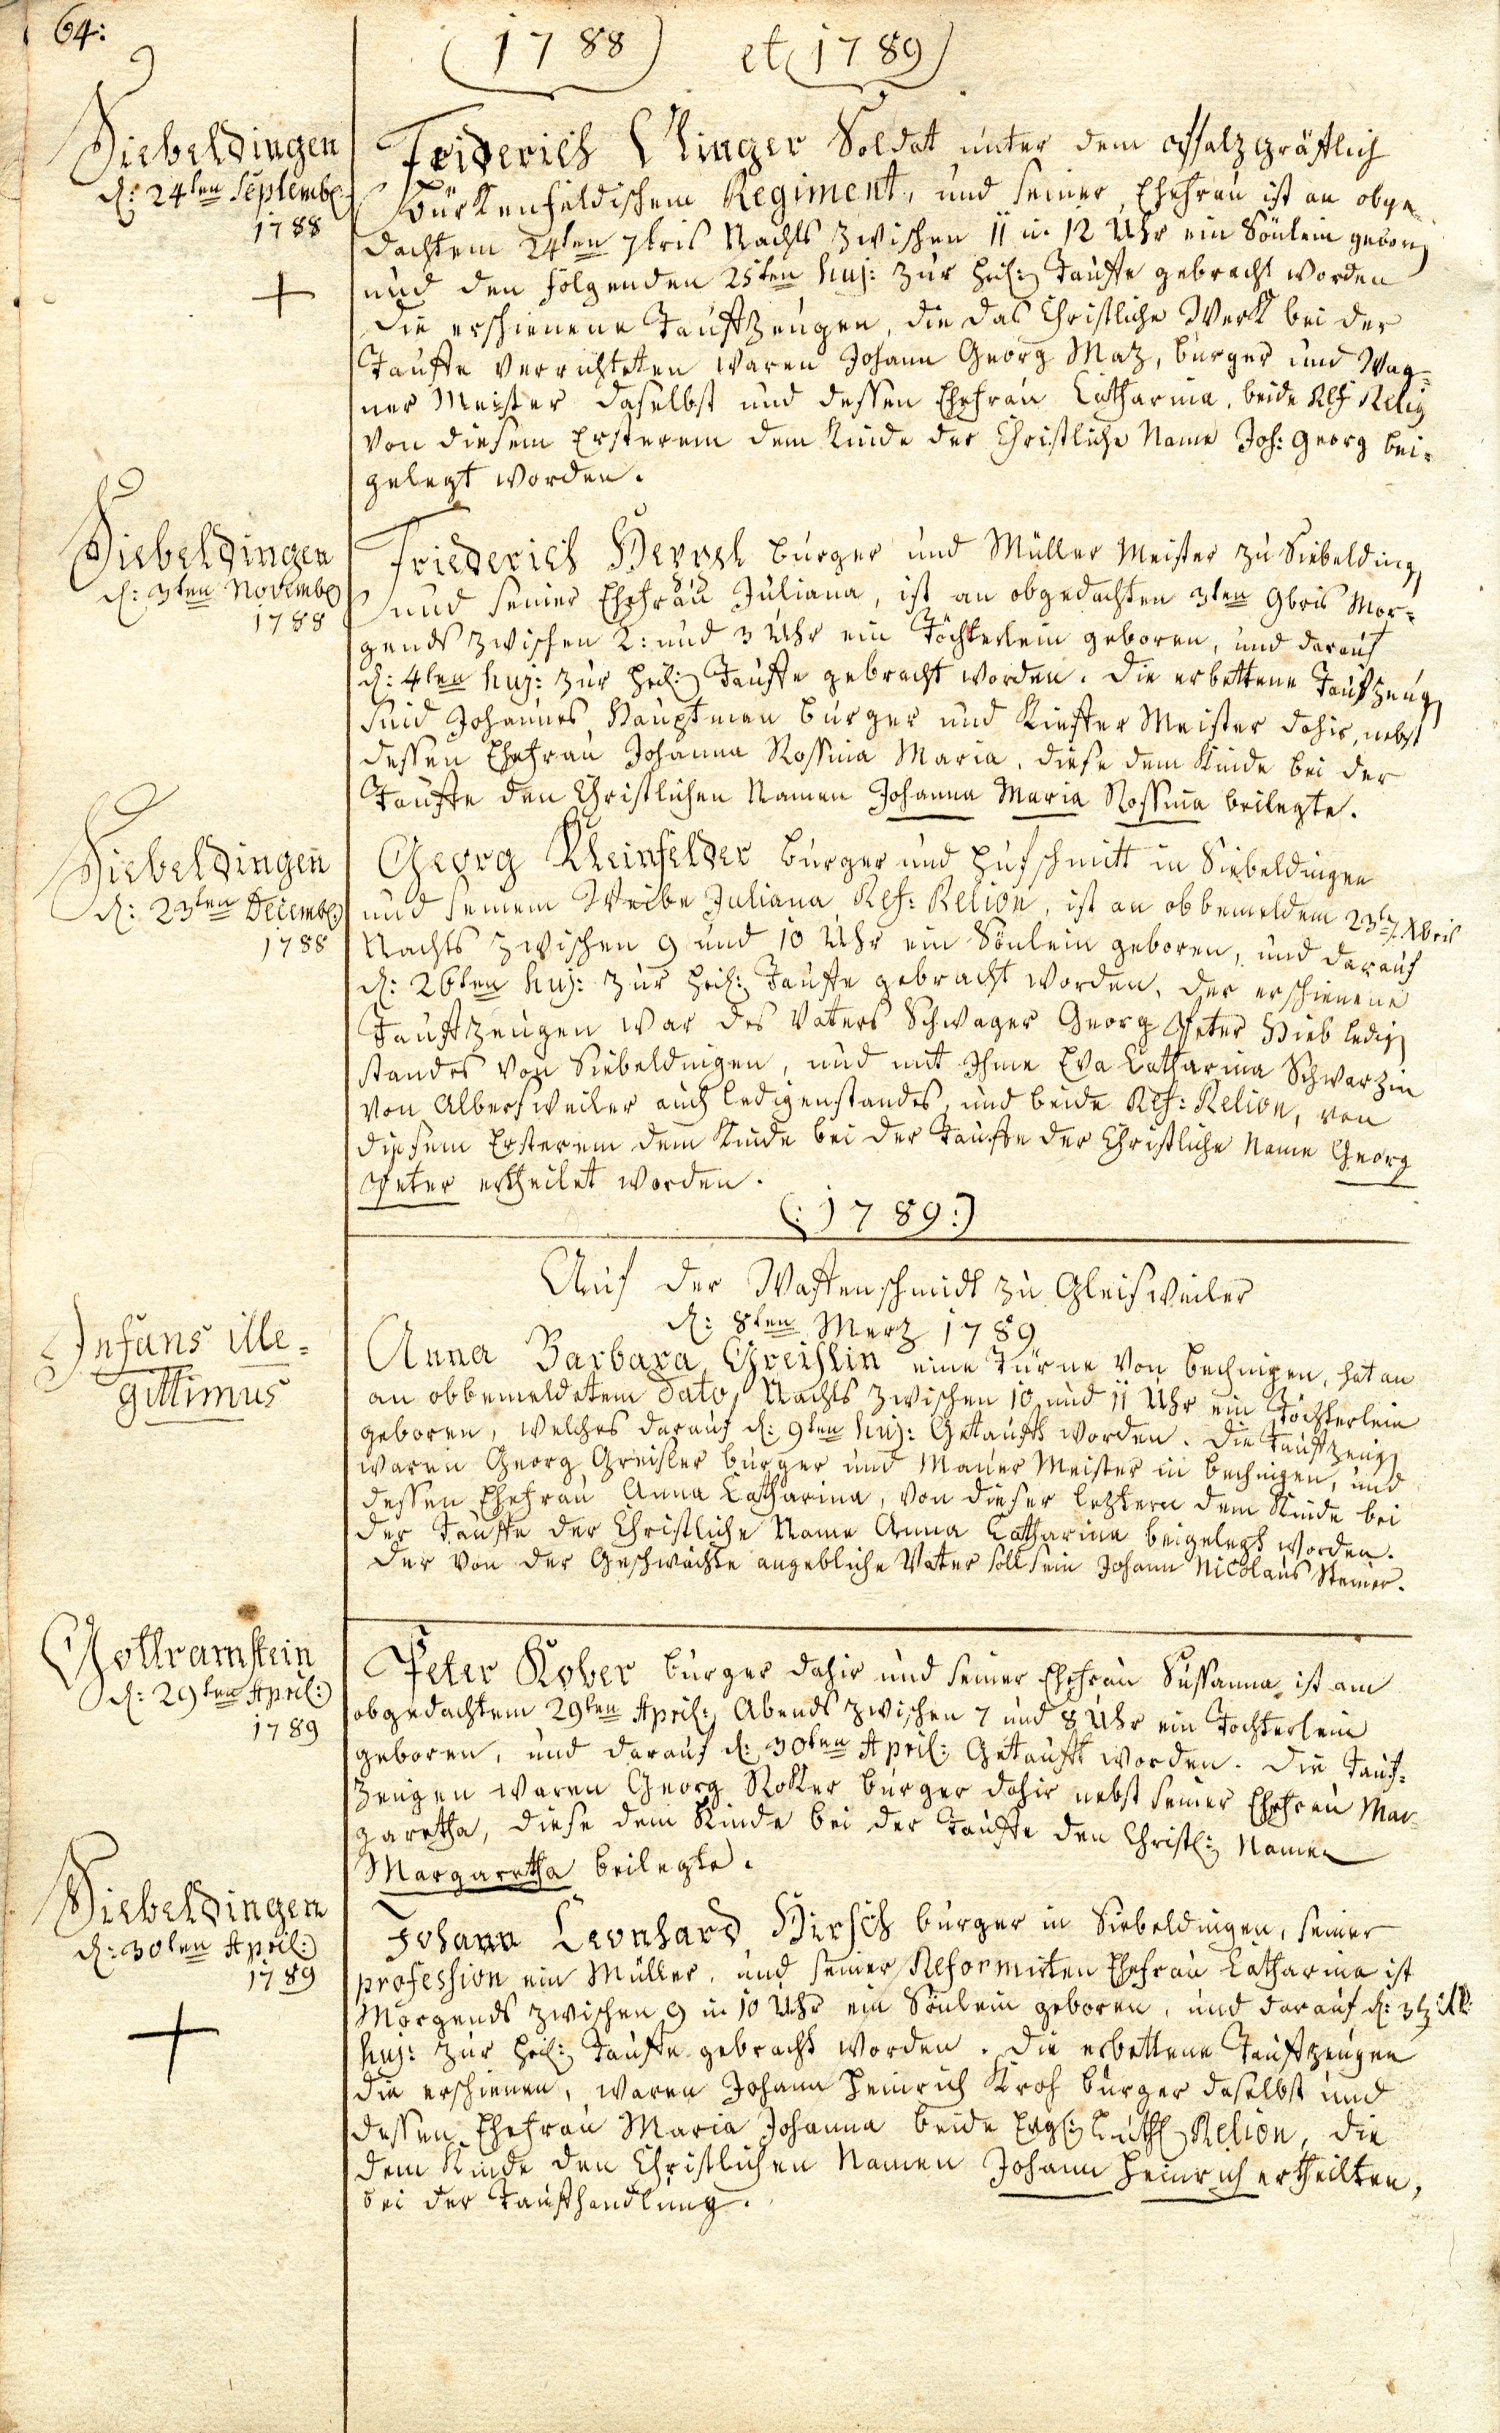 64:
1788 et 1789
Siebeldingen
d: 24ten Septemb:
1788
Friderich Klinger Soldat unter dem Pfalzgräflich
Bürkenfeldischem Regiment, und seiner Ehefrau ist an obge-
dachtem 24ten 7bris Nachts zwischen 11 u. 12 Uhr ein Sönlein geboren
und den folgenden 25ten huj: zur heil: Tauffe gebracht worden
die erschienene Tauffzeugen, die das Christliche Werk bei der
Tauffe verrichteten waren Johann Georg Maz, burger und Wag-
ner Meister daselbst und dessen Ehefrau Catharina, beide Ref Relig
von diesem Ersterem dem Kinde der Christliche Name Joh: Georg bei-
gelegt worden.
Siebeldingen
d: 3ten Novemb:
1788
Friederich Herrel burger und Müller Meister zu Siebelding
und seiner Ehefrau Juliana, ist an obgedachten 3ten 9bris Mor-
gends zwischen 2: und 3 Uhr ein Töchterlein geboren, und darauf
d: 4ten huj: zur heil: Tauffe gebracht worden. Die erbettene Taufzeug
sind Johannes Hauptman burger und Kieffer Meister dahir, nebst
dessen Ehefrau Johanna Rossina Maria, diese dem Kinde bei der
Tauffe den Christlichen Namen Johanna Maria Rossina beilegte.
Siebeldingen
d: 23ten Decemb:
1788
Georg Kleinfelder burger und Hufschmitt in Siebeldingen
und seinem Weibe Juliana Ref: Relion, ist an obbemeldem 23ten Xbris
Nachts zwischen 9 und 10 Uhr ein Sönlein geboren, und darauf
d: 26ten huj: zur heil: Tauffe gebracht worden, der erschienene
Tauffzeugen war des Vaters Schwager Georg Peter Hieb ledig
standes von Siebeldingen, und mit Ihme Eva Catharina Schwarzin
von Albersweiler auch ledigenstandes, und beide Ref: Relion, von
diesem Ersterem dem Kinde bei der Tauffe der Christliche Name Georg
Peter ertheilet worden.
(: 1789 :)
Auf der Waffenschmidt zu Gleisweiler
d: 8ten Merz 1789
Infans ille-
gittimus
Anna Barbara Greislin eine Türne von bechingen, hat an
an obbemeldetem dato, Nachts zwischen 10 und 11 Uhr ein Töchterlein
geboren, welches darauf d: 9ten huj: Getauft worden. Die Tauffzeug
waren Georg Greisler burger und Mauer Meister in bechingen, und
dessen Ehefrau Anna Catharina, von dieser letztern dem Kinde bei
der Tauffe der Christliche Name Anna Catharina beigelegt worden.
Der von der Geschwächte angebliche Vater soll sein Johann Nicolaus Steiner.
Gottramstein
d: 29ten April:
1789
Peter Kober burger dahir und seiner Ehefrau Sussanna ist am
obgedachtem 29ten April: Abends zwischen 7 und 8 Uhr ein Tochterlein
geboren, und darauf d: 30ten April: Getaufft worden. Die Tauf-
zeugen waren Georg Rokker burger dahir nebst seiner Ehefrau Mar-
garetha, diese dem Kinde bei der Tauffe den Christl: Namen
Margaretha beilegte.
Siebeldingen
d: 30ten April:
1789
Johann Leonhard Hirsch burger in Siebeldingen, seiner
profession ein Müller, und seiner Reformirten Ehefrau Catharina ist
Morgends zwischen 9 u 10 Uhr ein Sönlein geboren, und darauf d: 3
huj: zur heil: Tauffe gebracht worden. Die erbettene Tauffzeugen
die erschienen, waren Johann Heinrich Kroh burger daselbst und
dessen Ehefrau Maria Johanna beide Evgl: Luth: Relion, die
dem Kinde den Christlichen Namen Johann Heinrich ertheilten,
bei der Tauffhandlung.